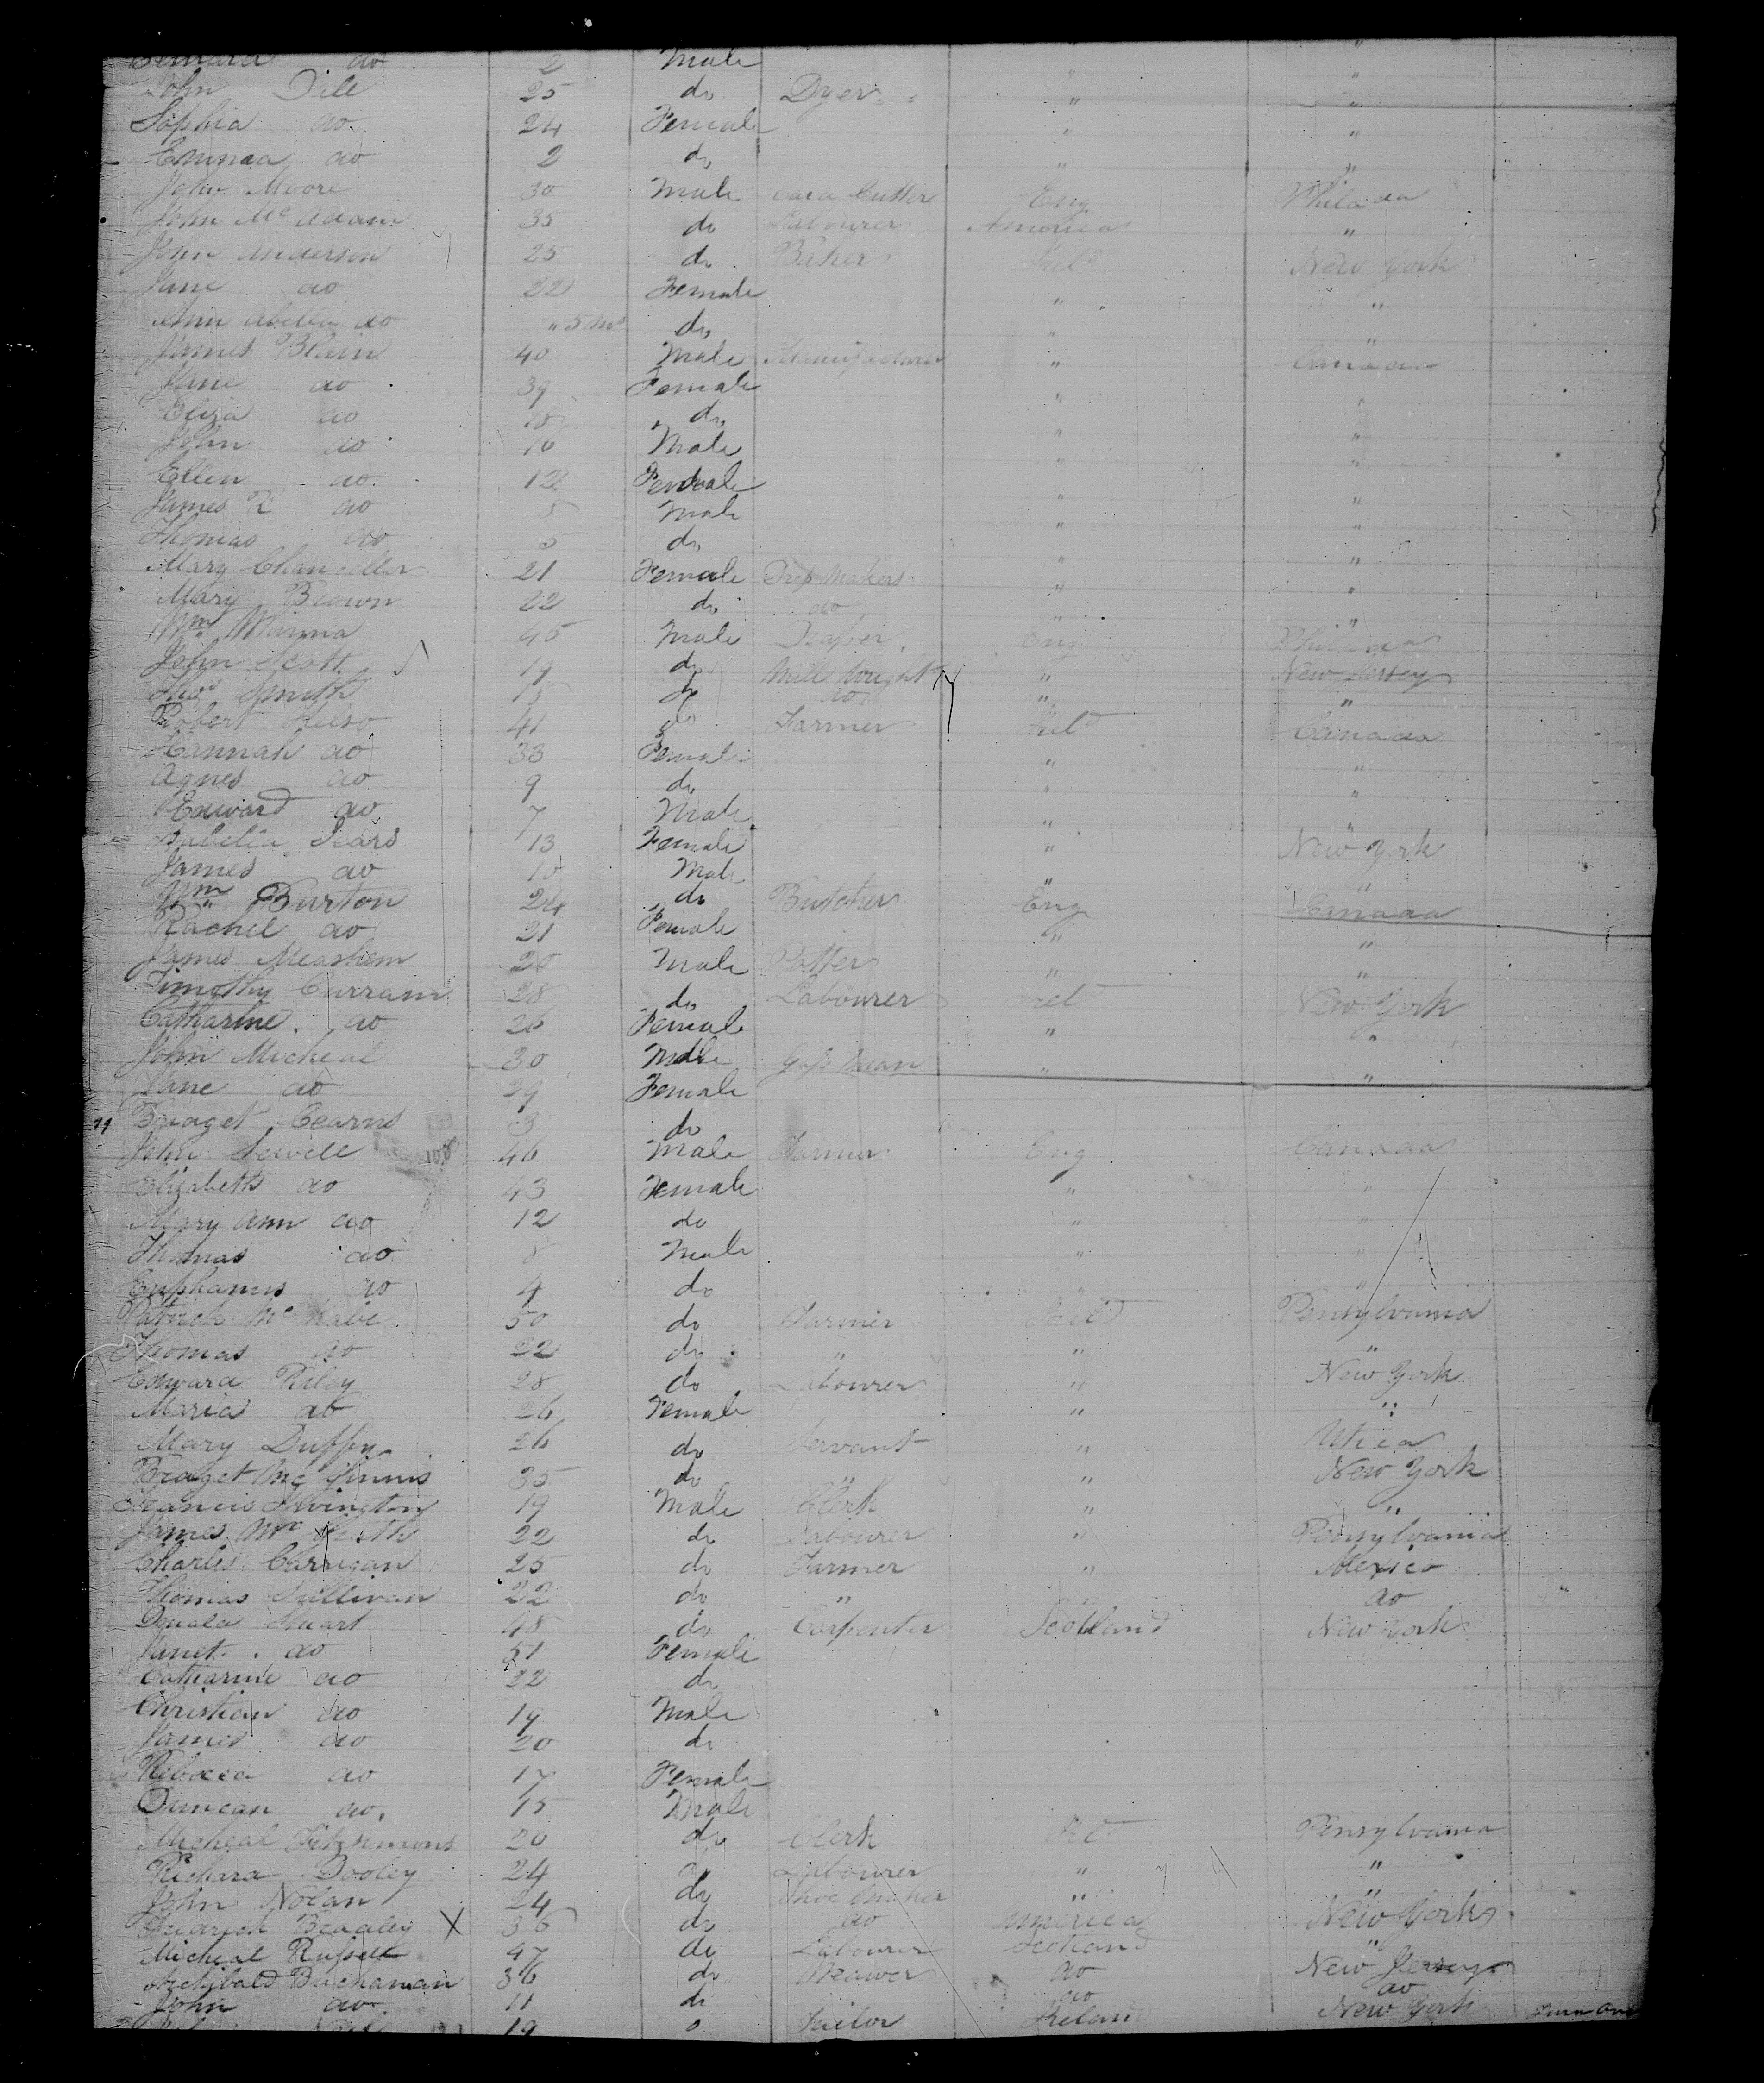 do 2 Male "
John Dill 25 do Dyer " "
Sophia do 24 Female " "
Emma do 2 do " "
John Moore 30 Male Cutter Eng Philada
John Mc Adam 35 do Labourer America "
John Anderson 25 do Baker Ireld New York
Jane do 22 Female " "
Ann abella do " 5 Mos do " "
James Blain 40 Male Manufacturer " Canada
Jane do 39 Female " "
Eliza do 18 do " "
John do 16 Male " "
Ellen do 12 Female " "
James R do 5 Male " "
Thomas do 3 do " "
Mary Chancellor 21 Female Dress Makers " "
Mary Brown 22 do do " "
Wm 45 Male Draper Eng Philada
John Scott 19 do Mill Wright " New Jersey
Thos Smith 15 do do " "
Robert 41 do Farmer Ireld Canada
Hannah do 33 Female " "
Agnes do 9 do " "
Edward do 7 Male " "
Isabella Sears 13 Female " New York
James do 10 Male " "
Wm Burton 24 do Butcher Eng Canada
Rachel do 21 Female " "
James 20 Male Potter " "
Timothy Curram 28 do Labourer Ireld New York
Catharine do 26 Female " "
John Micheal 30 Male Gass Mean " "
Jane do 29 Female "
Bridget Cearns 3 do
John Sewell 46 Male Farmer Eng Canada
Elizabeth do 43 Female " "
Mary Ann do 12 do " "
Thomas do 8 Male " "
do 4 do " "
Patrick Mc Kabe 50 do Farmer Ireld Pensylvania
Thomas do 22 do " " "
Edward Riley 28 do Labourer " New York
Maria do 26 Female " "
Mary Duffy 26 do Servant " Utica
Bridget Mc Ginnis 35 do " " New York
Francis 19 Male Clerk " "
James Mc 22 do Labourer " Pensylvania
Charles Carrigan 25 do Farmer " Mexico
Thomas Sullivan 22 do " " do
Stuart 48 do Carpenter Scotland New York
Janet do 51 Female
Catharine do 22 do
Christian do 19 Male
James do 20 do
Rebecca do 17 Female
Duncan do 15 Male
Micheal Fitzsimons 20 do Clerk Ireld Pensylvania
Richard Dooley 24 do Labourer " "
John Nolan 24 do Shoe Maker " "
Bradley X 36 do do America New York
Micheal Russell 47 do Labourer Scotland "
Archibald Buchanan 36 do Weaver do New Jersey
John do 11 do do do
19 Tailor Ireland New York Turn Over